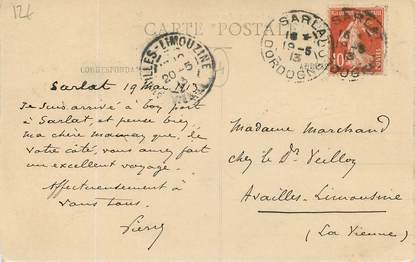 12€
CARTE POSTALE
CORRESPONDANCE
AVAILLES-LIMOUZINE
20-5
13
SARLAT
19-5
13
DORDOGNE
SARLAT
10
Sarlat 19 mai 1913
Je suis arrivé à bon port
à Sarlat, et pense bien,
ma chère maman que, de
votre côté, vous aurez fait
un excellent voyage.
Affectueusement à
vous tous.
Pierre
Madame Marchand
chez le Dr Veilloz
Availles-Limousine
(La Vienne)